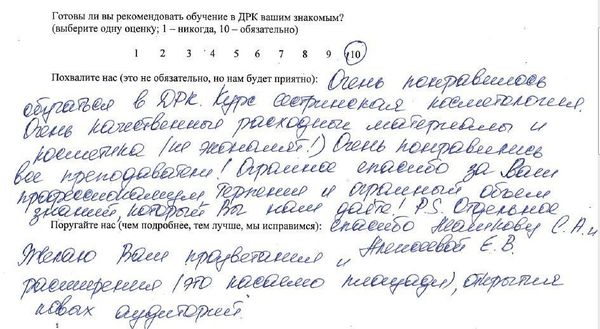 Готовы ли вы рекомендовать обучение в ДРК вашим знакомым?
(выберите одну оценку; 1 – никогда, 10 – обязательно)
1 2 3 4 5 6 7 8 9 10
Похвалите нас (это не обязательно, но нам будет приятно): Очень понравилось
обучаться в ДРК. Курс сестринская косметология.
Очень качественные расходные материалы и
косметика (не экономят!) Очень понравились
все преподаватели! Огромное спасибо за Ваш
профессионализм, терпение и огромный объем
знаний, который Вы нам даёте! P.S. Отдельное
Поругайте нас (чем подробнее, тем лучше, мы исправимся): спасибо С.А. и
Алексеевой Е.В.
Желаю Вам процветания и
расширения (это касаемо площади), открытия
новых аудиторий.